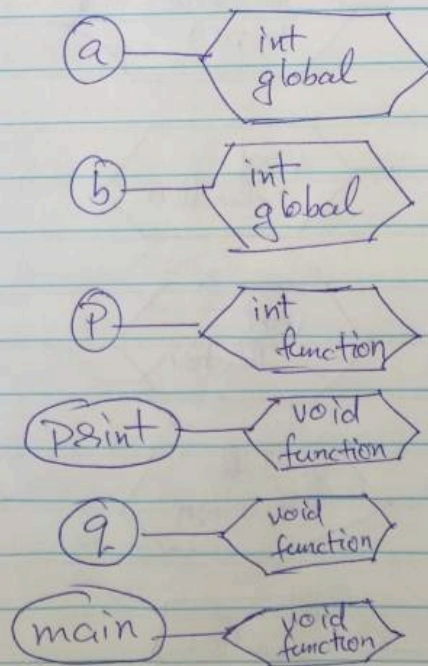 a int
global
b int
global
p int
function
print void
function
q void
function
main void
function